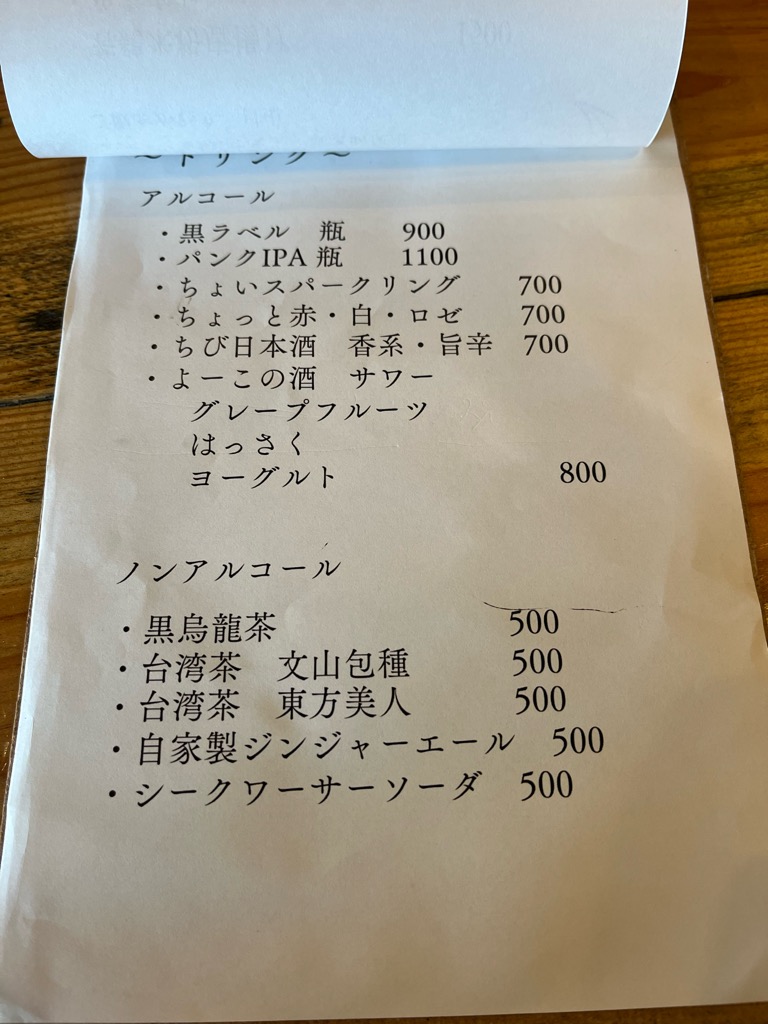 ～ドリンク～
アルコール
・黒ラベル　瓶　　900
・パンクIPA 瓶　　1100
・ちょいスパークリング　　700
・ちょっと赤・白・ロゼ　　700
・ちび日本酒　香系・旨辛　700
・よーこの酒　サワー
グレープフルーツ
はっさく
ヨーグルト　　800
ノンアルコール
・黒烏龍茶　　500
・台湾茶　文山包種　　500
・台湾茶　東方美人　　500
・自家製ジンジャーエール　500
・シークワーサーソーダ　500